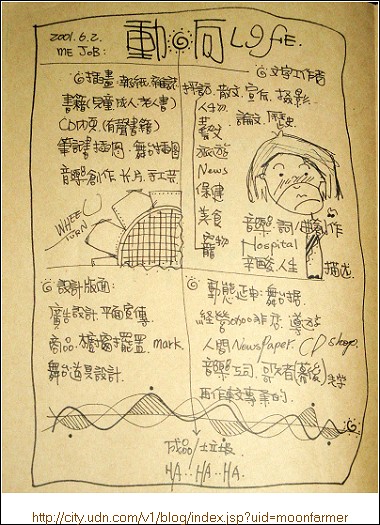 2001.6.2.
ME JOB:
動向 Life.
插畫. 報紙. 雜誌.
書籍(兒童.成人.老人書)
CD內頁.(有聲書籍)
筆記書插圖. 舞台插圖
音樂創作.卡片.手工菜.
WHEEL TURN
文字工作者
散文.宣傳.攝影.
論文.歷史.
人生物.
藝文
旅遊
News
保健
美食
寵物
音樂.詞/曲創作
Hospital
辛酸人生
描述
設計版面:
廣告設計.平面宣傳
商品.櫥窗擺置. mark.
舞台道具設計.
動態延申:舞台據.
人間 NewsPaper. CD shop.
音樂公司. 記者(幕後)
再作專業的.
成品/垃圾
HA...HA..HA.
http://city.udn.com/v1/blog/index.jsp?uid=moonfarmer